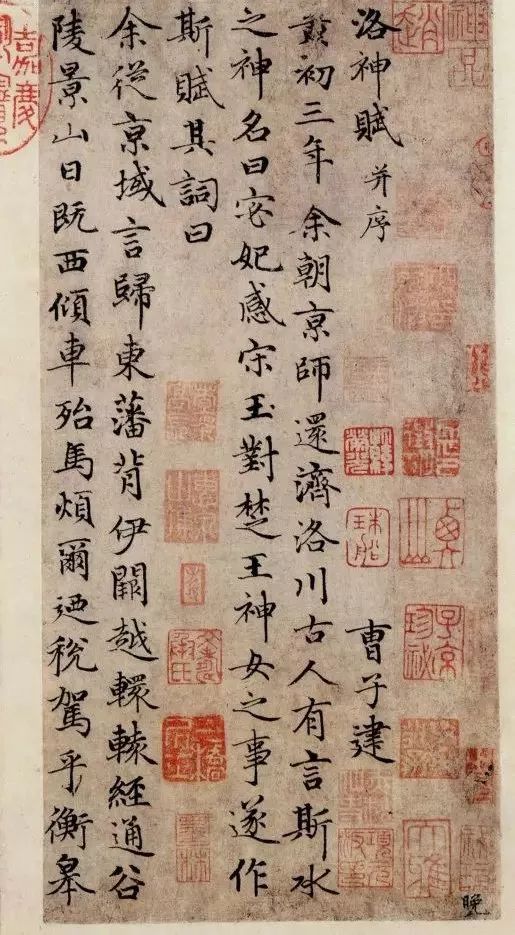 神品
洛神賦 并序 曹子建
黃初三年余朝京師還濟洛川古人有言斯水
之神名曰宓妃感宋玉對楚王神女之事遂作
斯賦其詞曰
余從京域言歸東藩背伊闕越轘轅經通谷
陵景山日既西傾車殆馬煩爾迺稅駕乎衡皋
子京珍祕
晚
嘉慶